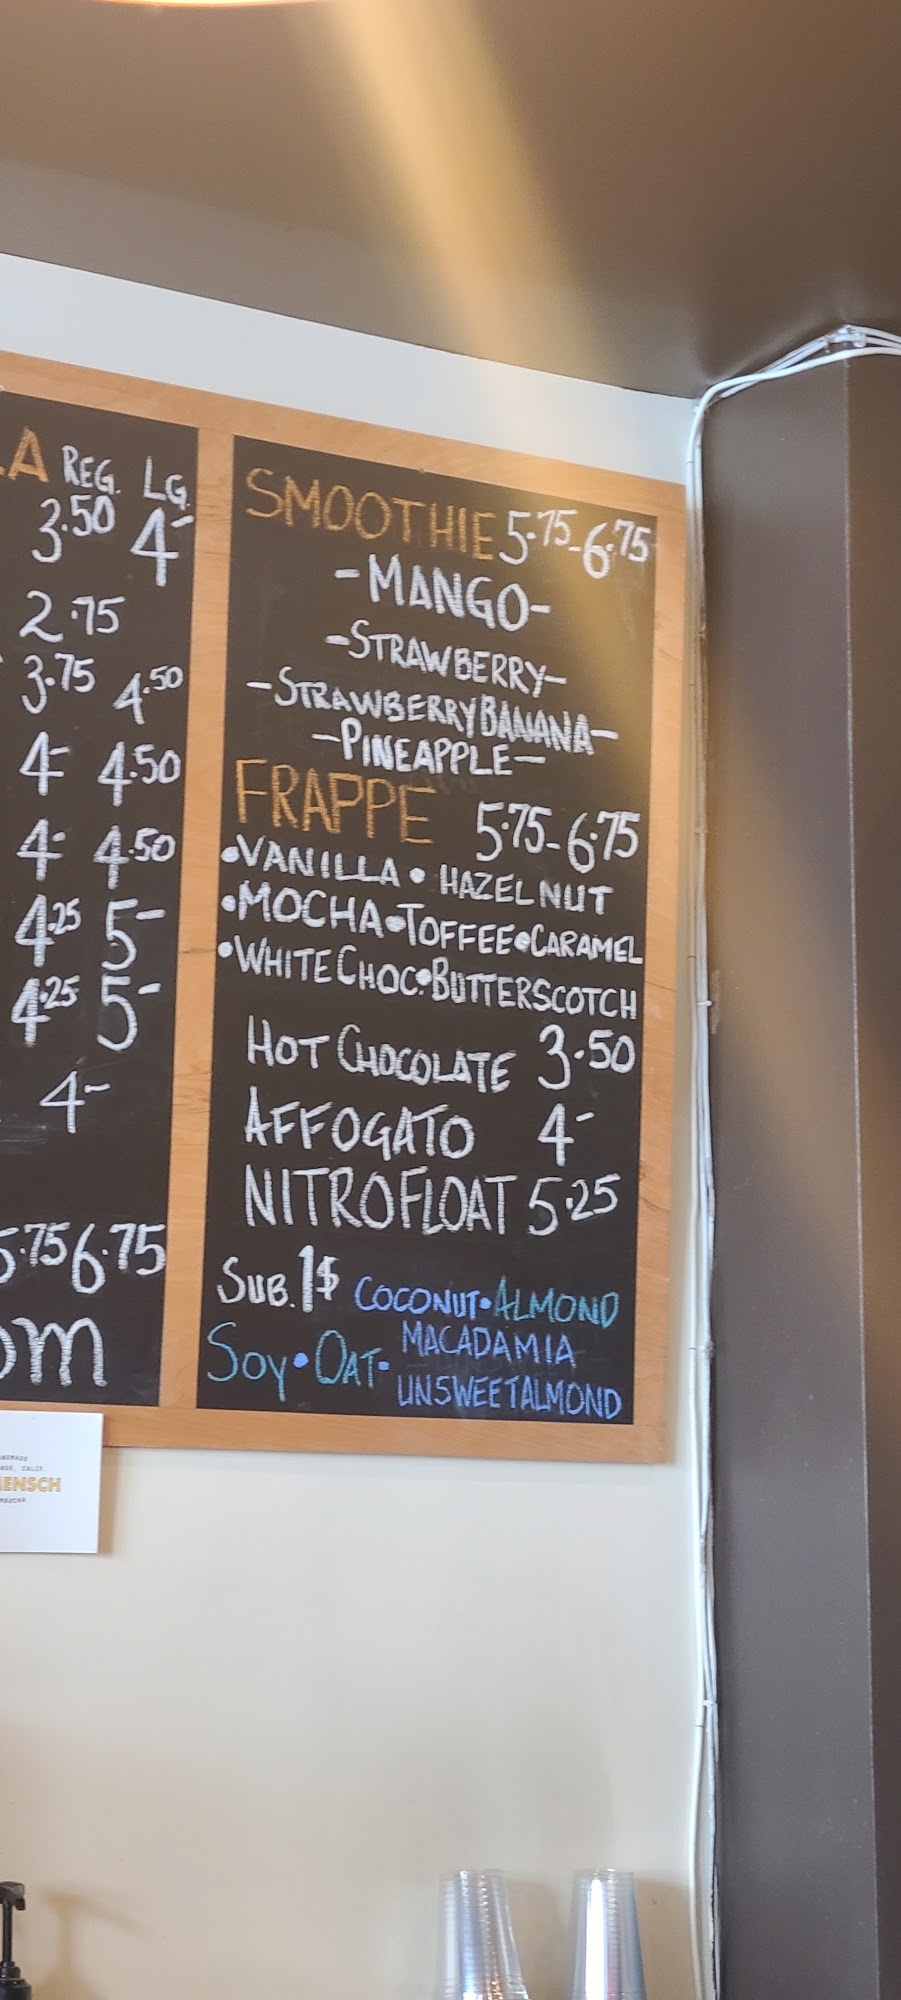 LA REG. LG.
3.50 4-
2.75
3.75 4.50
4- 4.50
4- 4.50
4.25 5-
4.25 5-
4-
5.75 6.75
om
SMOOTHIE 5.75-6.75
-MANGO-
-STRAWBERRY-
-STRAWBERRY BANANA-
-PINEAPPLE-
FRAPPE 5.75-6.75
•VANILLA • HAZELNUT
•MOCHA•TOFFEE•CARAMEL
•WHITE CHOC.•BUTTERSCOTCH
HOT CHOCOLATE 3.50
AFFOGATO 4-
NITRO FLOAT 5.25
SUB. 1$ COCONUT•ALMOND
SOY•OAT• MACADAMIA
UNSWEET ALMOND
ENSCH